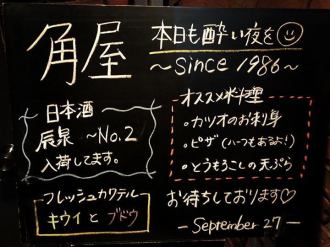 角屋
本日も酔い夜を☺
～since 1986～
日本酒
辰泉 ～No.2
入荷してます。
オススメ料理
・カツオのお刺身
・ピザ(ハーフもあるよ!)
・とうもろこしの天ぷら
フレッシュカクテル
キウイ と ブドウ
お待ちしております♡
— September 27 —